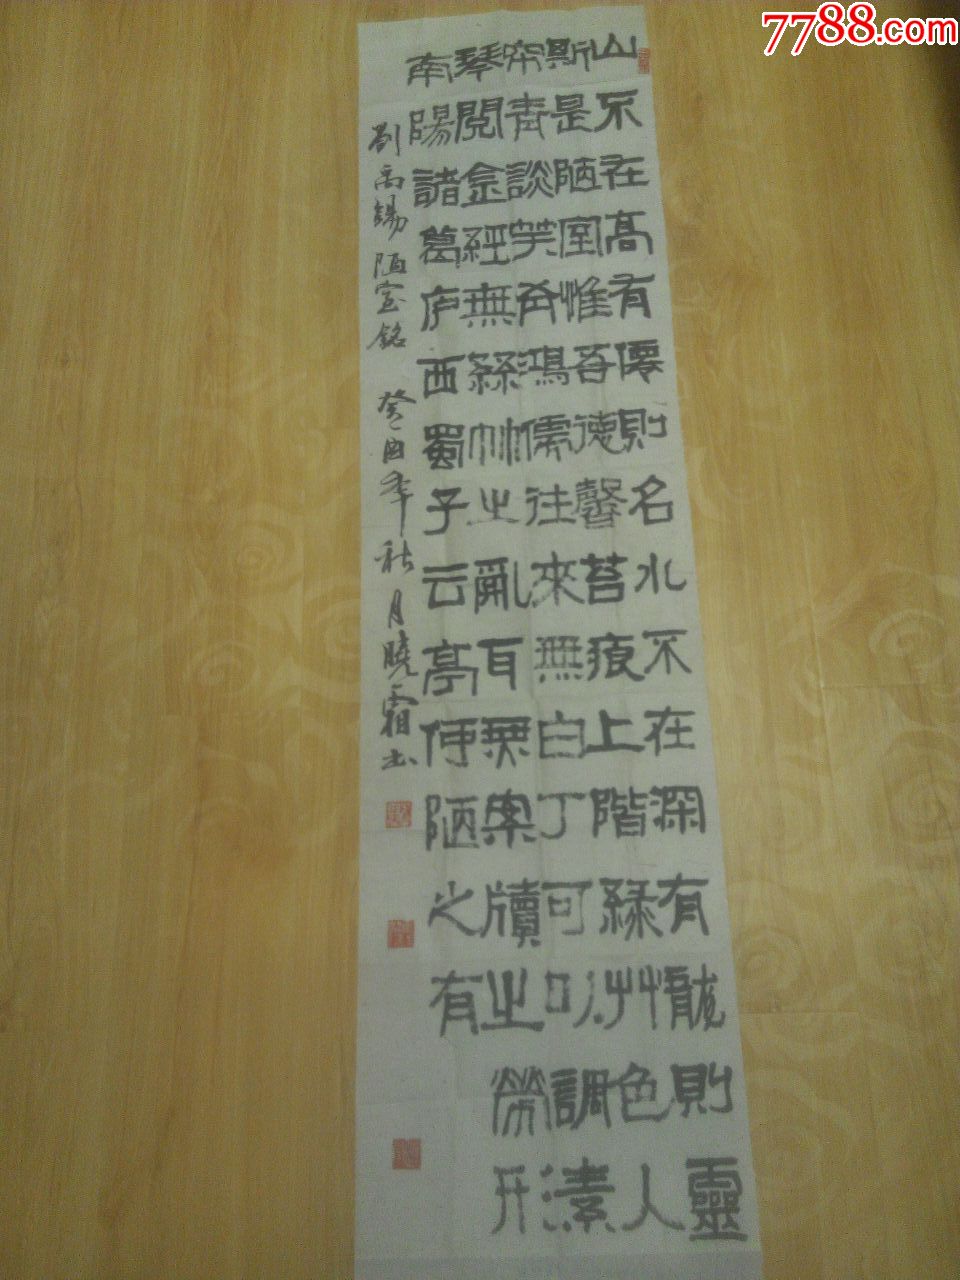 7788.com
山不在高有僊則名水不在深有龍則靈
斯是陋室惟吾德馨苔痕上階緑艸色人
帘青談笑有鴻儒往來無白丁可以調素
琴閲金經無絲竹之亂耳無案牘之勞形
南陽諸葛庐西蜀子云亭何陋之有
劉禹錫陋室銘 癸酉年秋月曉霜书